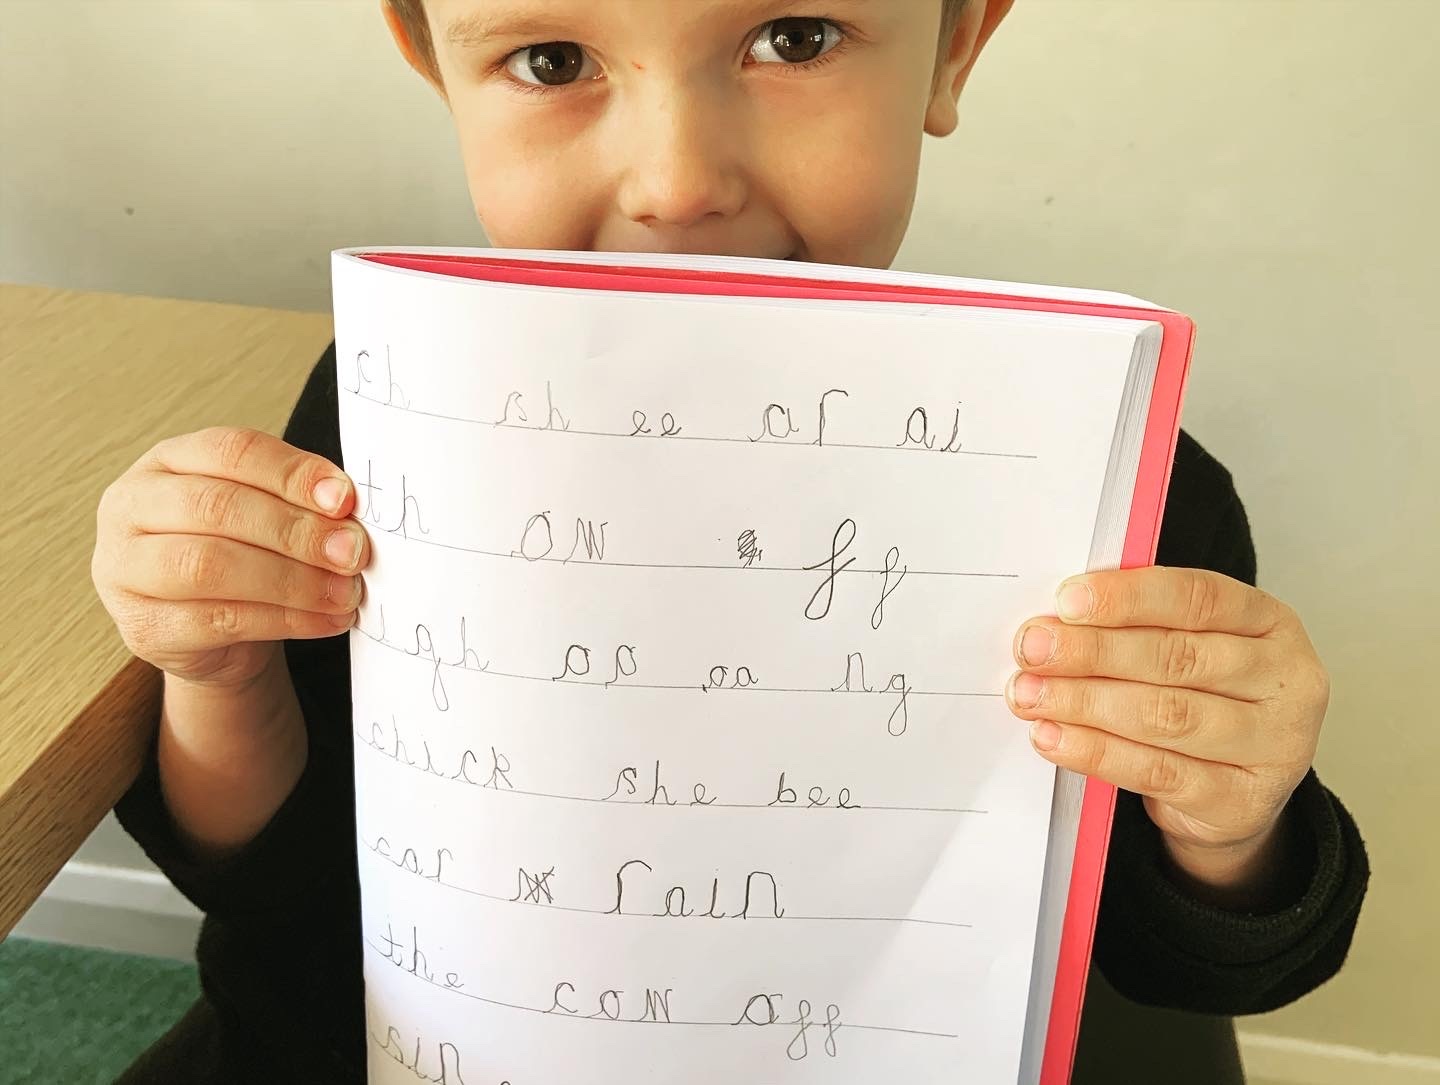 ch sh ee ar ai
th ow ff
igh oo oa ng
chick she bee
car rain
the cow off